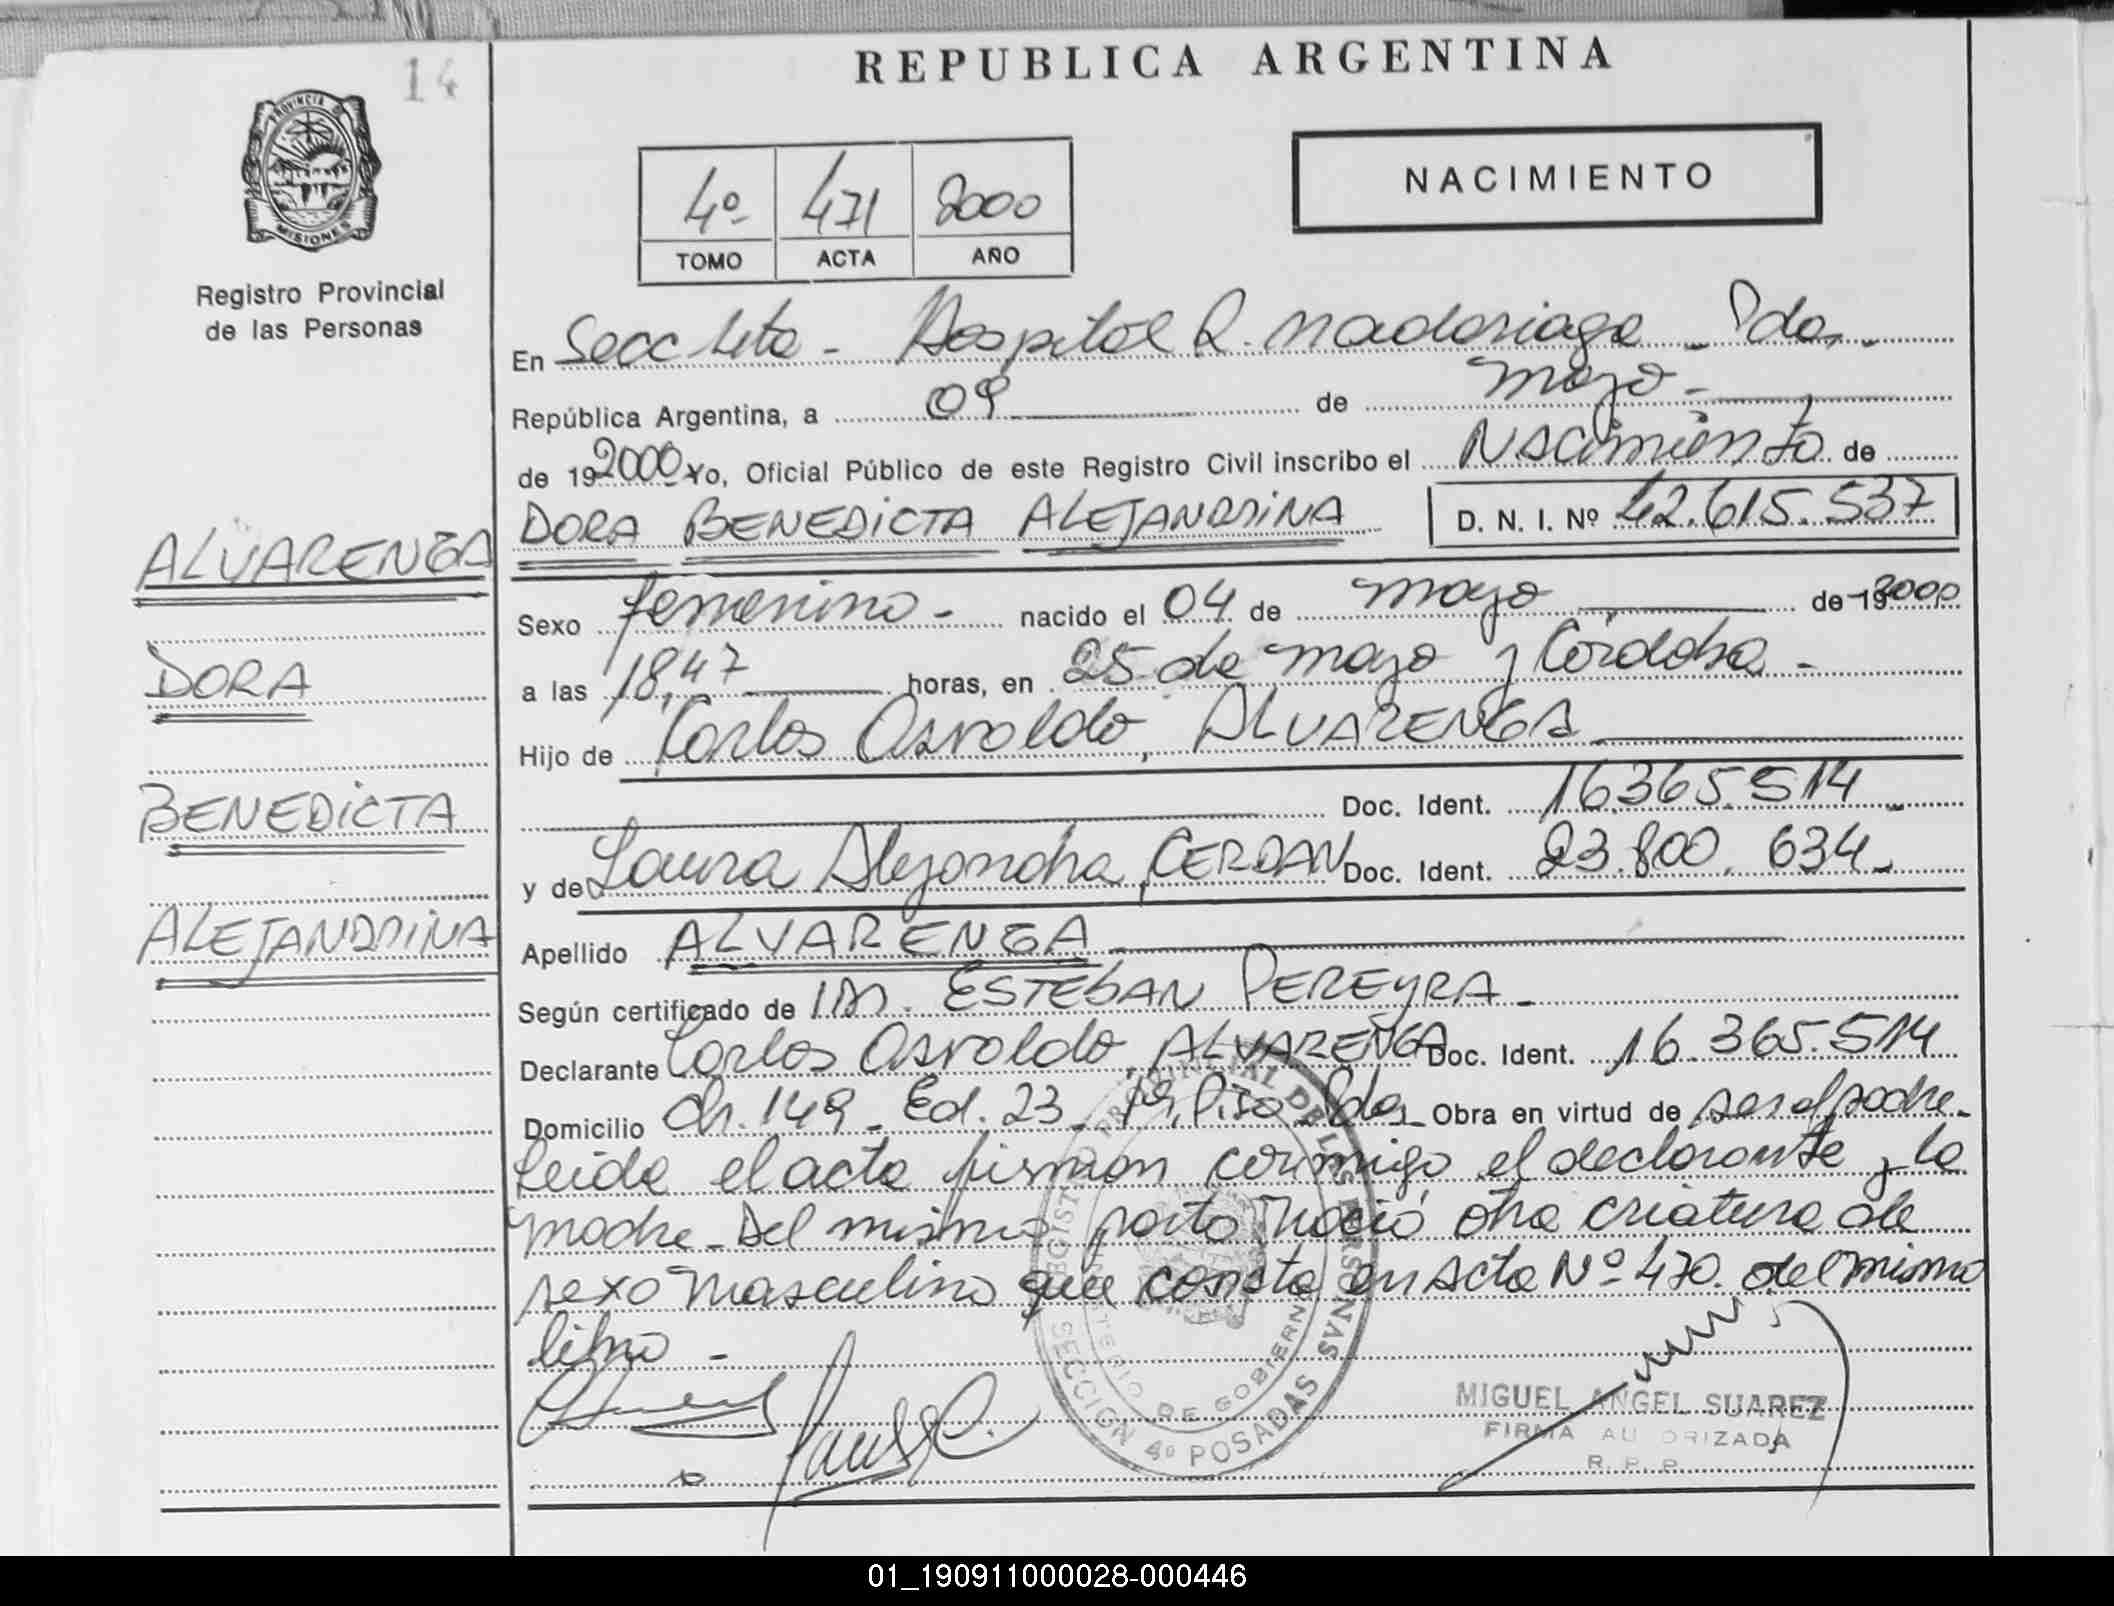 14
REPUBLICA ARGENTINA
PROVINCIA DE
MISIONES
Registro Provincial
de las Personas
4º 471 2000
TOMO ACTA AÑO
NACIMIENTO
En Secc 4ta - Hospital R. Madariaga - Pdas.
República Argentina, a 09 de mayo -
de 192000 Yo, Oficial Público de este Registro Civil inscribo el Nacimiento de
DORA BENEDICTA ALEJANDRINA D. N. I. Nº 42.615.537
ALVARENGA
DORA
BENEDICTA
ALEJANDRINA
Sexo femenino - nacido el 04 de mayo de 192000
a las 18,47 horas, en 25 de mayo y Córdoba -
Hijo de Carlos Osvaldo, ALVARENGA
Doc. Ident. 16.365.514 -
y de Laura Alejandra, CERDAN Doc. Ident. 23.800.634 -
Apellido ALVARENGA
Según certificado de Dr. ESTEBAN PEREYRA -
Declarante Carlos Osvaldo, ALVARENGA Doc. Ident. 16.365.514
Domicilio Ch. 149 - Ed. 23 - 1º Piso - Pdas - Obra en virtud de ser el padre -
Leida el acta firman conmigo el declarante y la
madre - Del mismo parto nació otra criatura de
sexo masculino que consta en Acta Nº 470. del mismo
libro -
REGISTRO PROVINCIAL DE LAS PERSONAS
MINISTERIO DE GOBIERNO
SECCION 4º POSADAS
MIGUEL ANGEL SUAREZ
FIRMA AUTORIZADA
R. P. P.
01_190911000028-000446